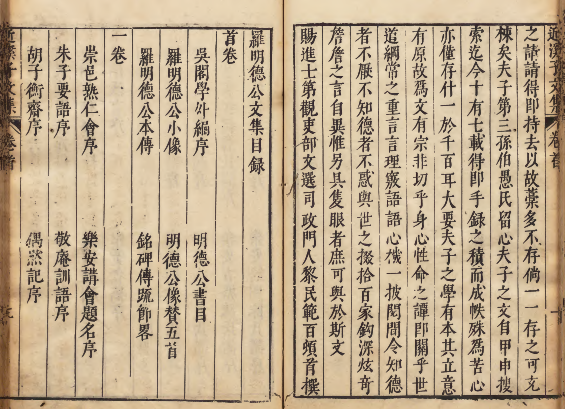 之請請得即持去以故藁多不存倘一一存之可充
棟矣夫子第三孫伯愚氏留心夫子之文自甲申搜
索迄今十有七載得即手錄之積而成帙殊為苦心
亦僅存什一於千百耳大要夫子之學有本其立意
有原故為文有宗非切乎身心性命之譚即關乎世
道綱常之重言言理窽語語心機一披閱間令知德
者不厭不知德者不惑與世之掇拾百家鈎深炫奇
詹詹之言自異惟另具隻眼者庶可與於斯文
賜進士第觀吏部文選司政門人黎民範百頓首撰
羅明德公文集目錄
首卷
吳閣學外編序 明德公書目
羅明德公小像 明德公像贊五首
羅明德公本傳 銘碑傳疏節畧
一卷
崇邑熟仁會序 樂安講會題名序
朱子要語序 敬庵訓語序
胡子衡齋序 偶然記序
近溪子文集 卷首